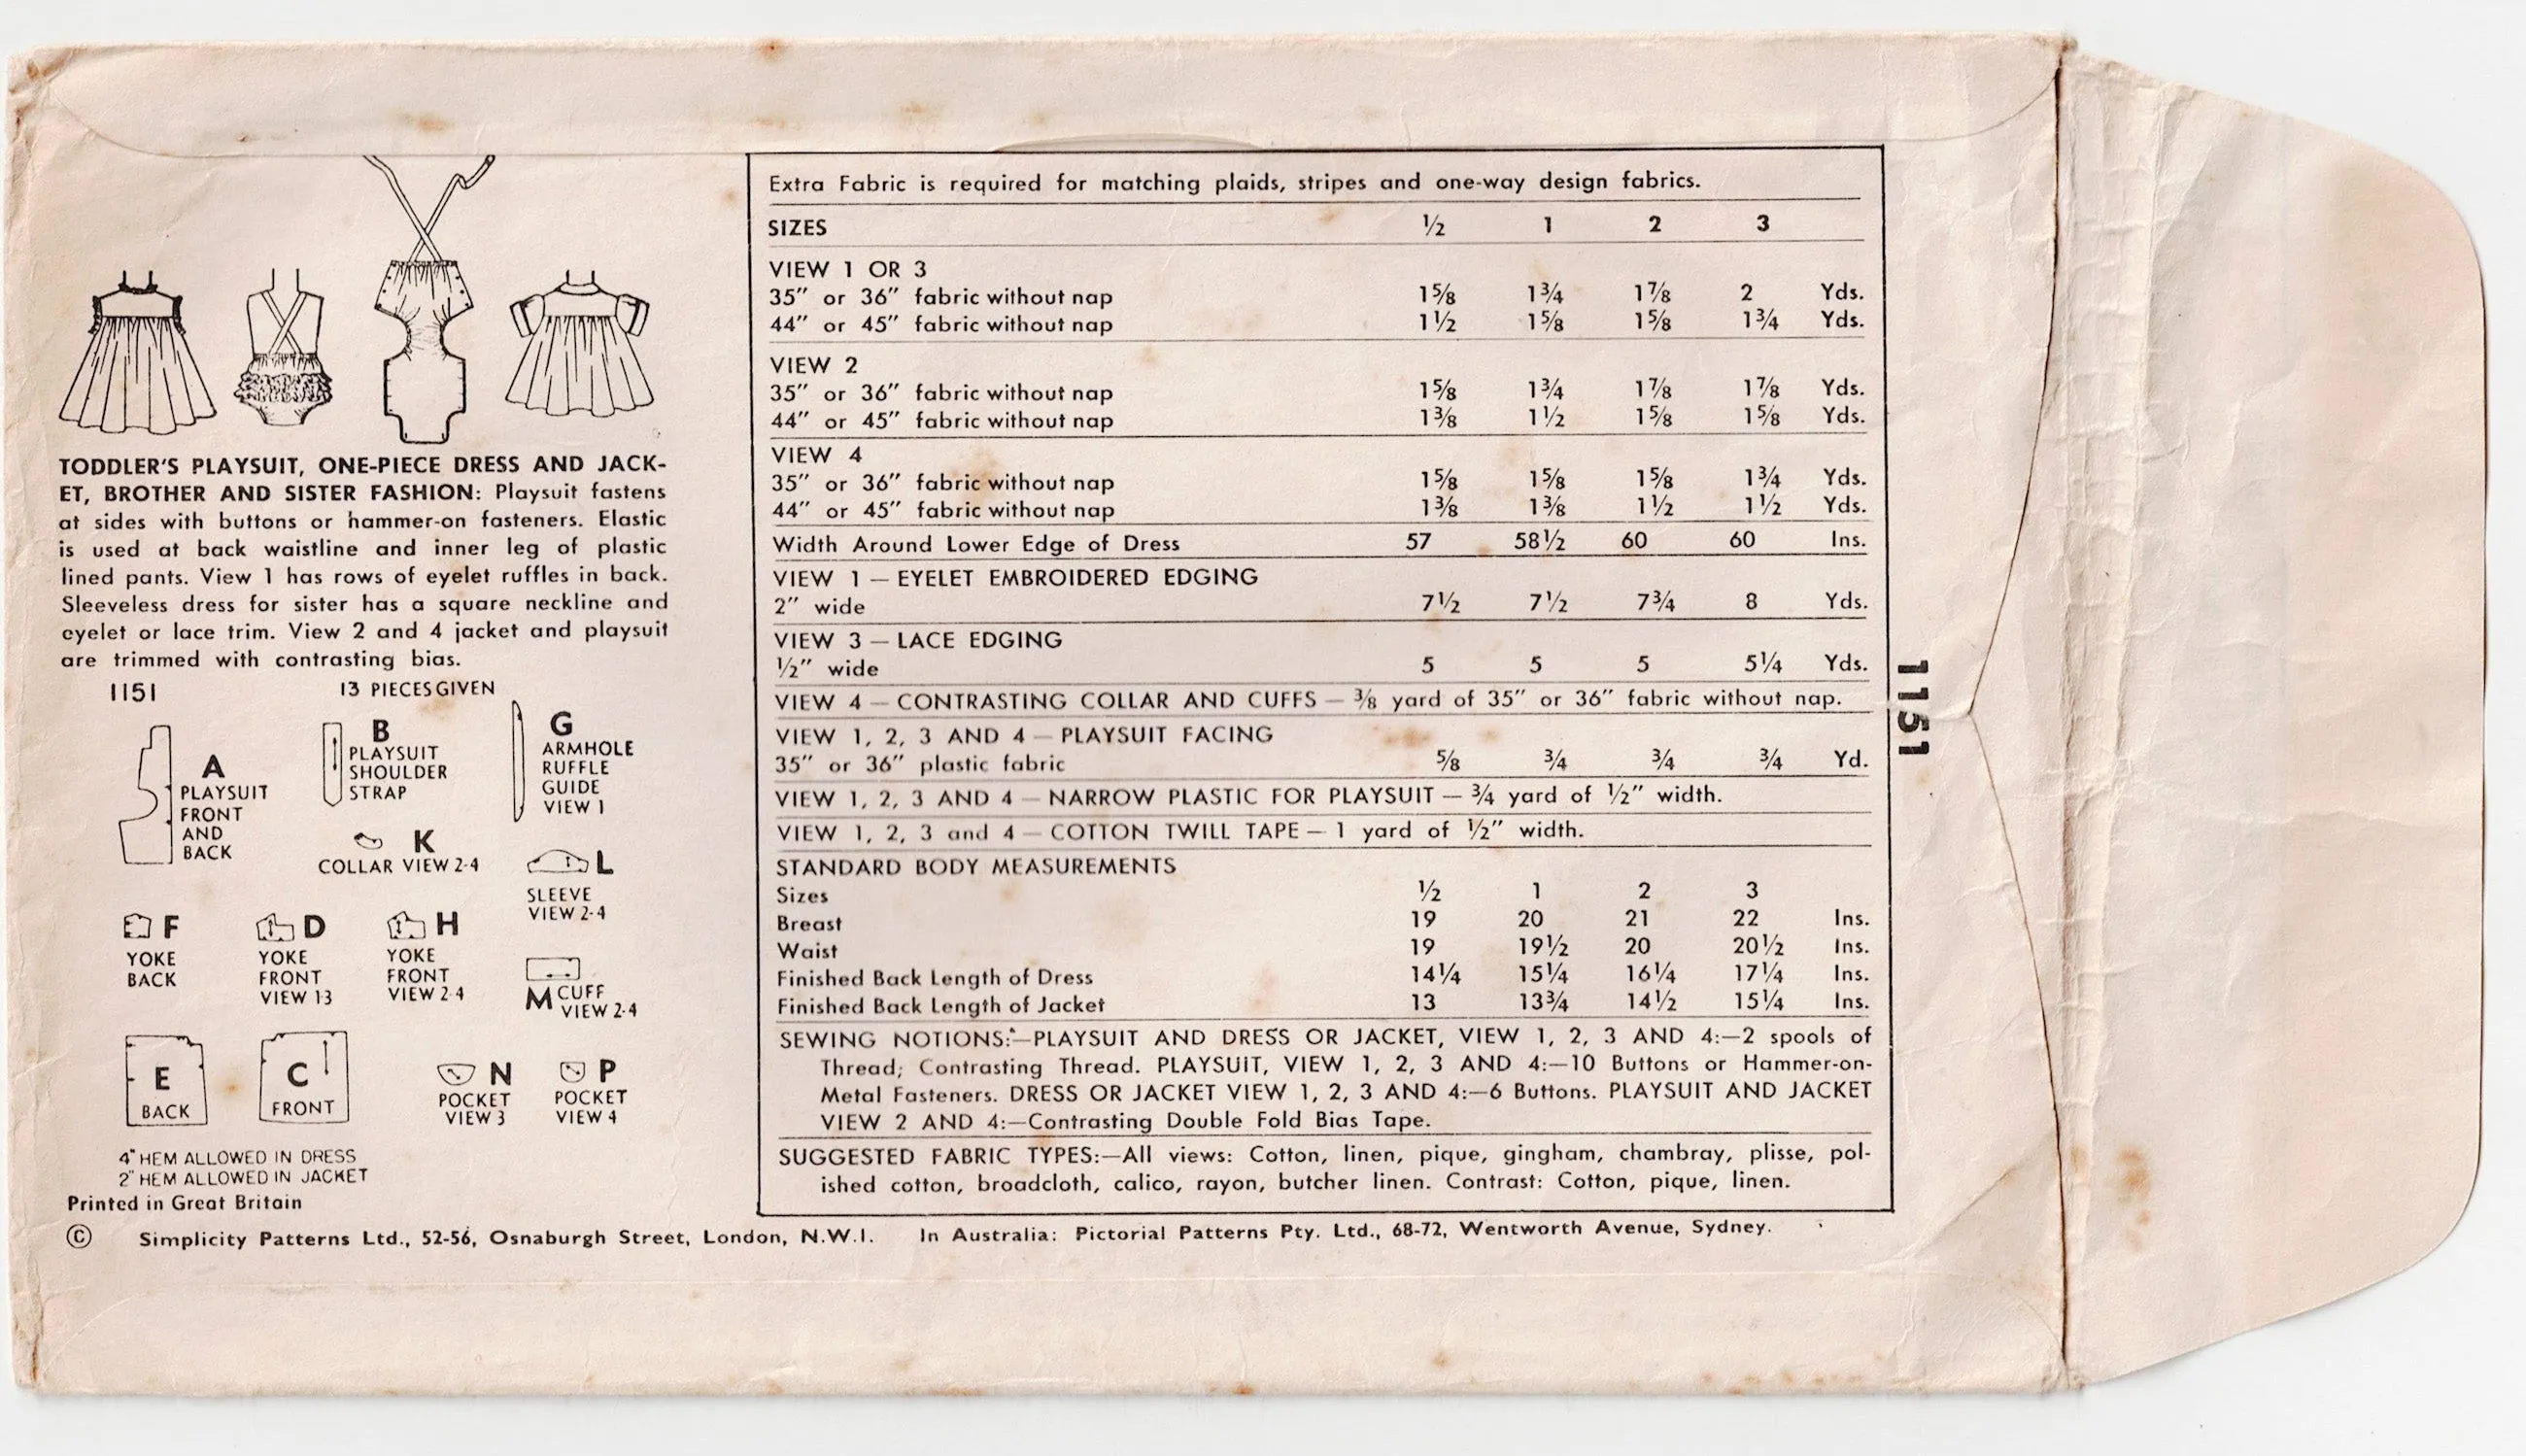 TODDLER'S PLAYSUIT, ONE-PIECE DRESS AND JACK-
ET, BROTHER AND SISTER FASHION: Playsuit fastens
at sides with buttons or hammer-on fasteners. Elastic
is used at back waistline and inner leg of plastic
lined pants. View 1 has rows of eyelet ruffles in back.
Sleeveless dress for sister has a square neckline and
eyelet or lace trim. View 2 and 4 jacket and playsuit
are trimmed with contrasting bias.
1151 13 PIECES GIVEN
A
PLAYSUIT
FRONT
AND
BACK
B
PLAYSUIT
SHOULDER
STRAP
G
ARMHOLE
RUFFLE
GUIDE
VIEW 1
K
COLLAR VIEW 2-4
L
SLEEVE
VIEW 2-4
F
YOKE
BACK
D
YOKE
FRONT
VIEW 1-3
H
YOKE
FRONT
VIEW 2-4
M CUFF
VIEW 2-4
E
BACK
C
FRONT
N
POCKET
VIEW 3
P
POCKET
VIEW 4
4" HEM ALLOWED IN DRESS
2" HEM ALLOWED IN JACKET
Printed in Great Britain
Extra Fabric is required for matching plaids, stripes and one-way design fabrics.
SIZES ½ 1 2 3
VIEW 1 OR 3
35" or 36" fabric without nap 1⅝ 1¾ 1⅞ 2 Yds.
44" or 45" fabric without nap 1½ 1⅝ 1⅝ 1¾ Yds.
VIEW 2
35" or 36" fabric without nap 1⅝ 1¾ 1⅞ 1⅞ Yds.
44" or 45" fabric without nap 1⅜ 1½ 1⅝ 1⅝ Yds.
VIEW 4
35" or 36" fabric without nap 1⅝ 1⅝ 1⅝ 1¾ Yds.
44" or 45" fabric without nap 1⅜ 1⅜ 1½ 1½ Yds.
Width Around Lower Edge of Dress 57 58½ 60 60 Ins.
VIEW 1 — EYELET EMBROIDERED EDGING
2" wide 7½ 7½ 7¾ 8 Yds.
VIEW 3 — LACE EDGING
½" wide 5 5 5 5¼ Yds.
VIEW 4 — CONTRASTING COLLAR AND CUFFS — ⅜ yard of 35" or 36" fabric without nap.
VIEW 1, 2, 3 AND 4 — PLAYSUIT FACING
35" or 36" plastic fabric ⅝ ¾ ¾ ¾ Yd.
VIEW 1, 2, 3 AND 4 — NARROW PLASTIC FOR PLAYSUIT — ¾ yard of ½" width.
VIEW 1, 2, 3 and 4 — COTTON TWILL TAPE — 1 yard of ½" width.
STANDARD BODY MEASUREMENTS
Sizes ½ 1 2 3
Breast 19 20 21 22 Ins.
Waist 19 19½ 20 20½ Ins.
Finished Back Length of Dress 14¼ 15¼ 16¼ 17¼ Ins.
Finished Back Length of Jacket 13 13¾ 14½ 15¼ Ins.
SEWING NOTIONS:—PLAYSUIT AND DRESS OR JACKET, VIEW 1, 2, 3 AND 4:—2 spools of
Thread; Contrasting Thread. PLAYSUIT, VIEW 1, 2, 3 AND 4:—10 Buttons or Hammer-on-
Metal Fasteners. DRESS OR JACKET VIEW 1, 2, 3 AND 4:—6 Buttons. PLAYSUIT AND JACKET
VIEW 2 AND 4:—Contrasting Double Fold Bias Tape.
SUGGESTED FABRIC TYPES:—All views: Cotton, linen, pique, gingham, chambray, plisse, pol-
ished cotton, broadcloth, calico, rayon, butcher linen. Contrast: Cotton, pique, linen.
1151
© Simplicity Patterns Ltd., 52-56, Osnaburgh Street, London, N.W.I. In Australia: Pictorial Patterns Pty. Ltd., 68-72, Wentworth Avenue, Sydney.